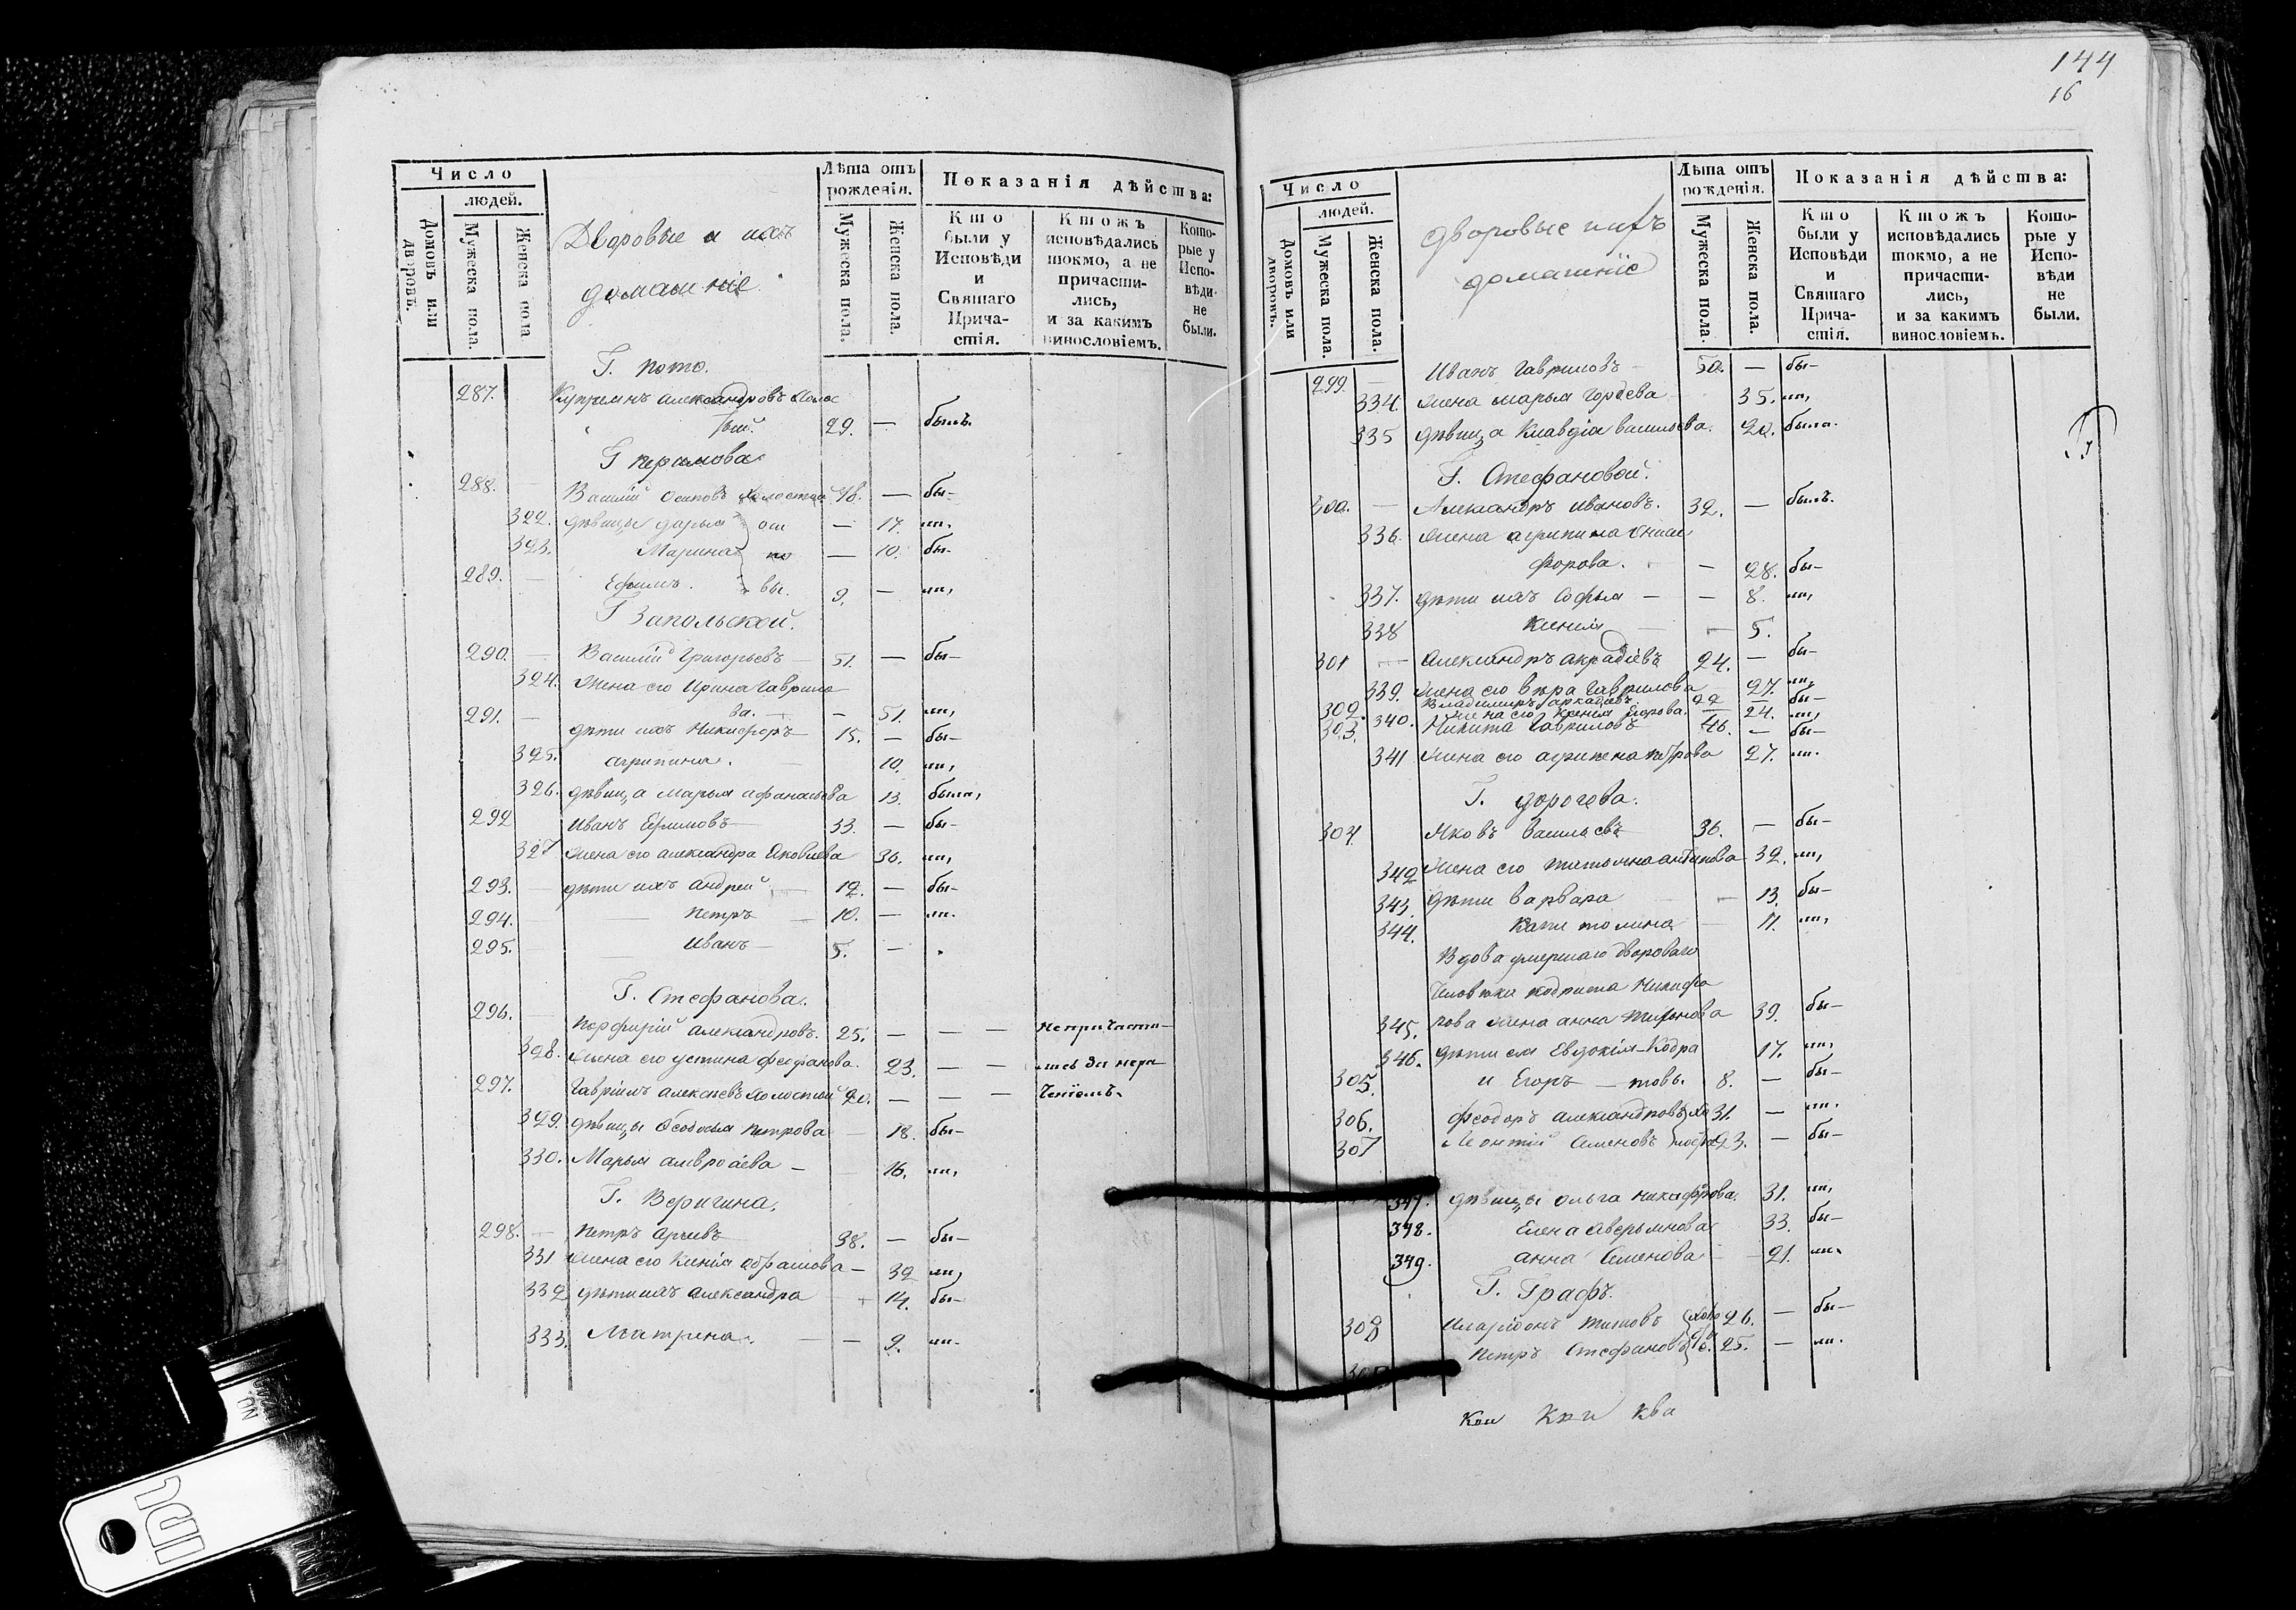 Число
людей.
Домовъ или дворовъ.
Мужеска пола.
Женска пола
Дворовые и ихъ
домашніе.
Лѣта отъ
рожденія.
Мужеска пола.
Женска пола.
Показанія дѣйства:
Кто были у Исповѣди и Святаго Прича-стія.
Ктожъ исповѣдались токмо, а не причасти-лись, и за какимъ винословіемъ.
Кото-рые у Испо-вѣди не были.
Г. Пото.
287. Купреянъ Александровъ Холос
тый. 29. — былъ.
Г Перамова
288. — Василій Осиповъ холостый 46. — бы—
322. дѣвицы Дарья } оси — 17. ли,
323. Марина } по — 10. бы-
289. — Ефимъ. } вы. 9. — ли,
Г Запольской.
290. — Василій Григорьевъ — 51. — бы—
324. Жена его Ирина Гаврило
ва. — — 51. ли,
291. — дѣти ихъ Никифоръ 15. — бы—
325. Агрипина. — 10. ли,
326. дѣвица Марья Афанасьева 13. была,
292 Иванъ Ефимовъ 33. — бы—
327 Жена его Александра Яковлева 36. ли,
293. — дѣти ихъ Андрей — 12. — бы-
294. — Петръ — 10. — ли.
295. — Иванъ — 5. — .
Г. Стефанова.
296. — Порфирій Александровъ. 25. — — — не причасти—
328. Жена его Устина Феофанова. 23. — — лись за нера-
297. Гавріилъ Алексѣевъ холостый 20. — — — ченіемъ.
329. дѣвицы Ѳеодосья Петрова — 18. бы—
330. Марья Амвросіева — 16. ли,
Г. Веригина.
298. — Петръ 38. — бы—
331 Жена его Ксенія Абрамова — 32 ли,
332 дѣти ихъ Александра — 14. бы—
333. Матрена. — — 9. ли-
144
16
Число
людей.
Домовъ или дворовъ.
Мужеска пола.
Женска пола.
дворовые ихъ
домашніе
Лѣта отъ
рожденія.
Мужеска пола.
Женска пола.
Показанія дѣйства:
Кто были у Исповѣди и Святаго Прича-стія.
Ктожъ исповѣдались токмо, а не причасти-лись, и за какимъ винословіемъ.
Кото-рые у Испо-вѣди не были.
299. — Иванъ Гавриловъ — 50. — бы—
334. Жена Марья Гордѣева 35. ли,
335 дѣвица Клавдія Васильева. 20. была.
Г. Стефановой.
300. — Александръ Ивановъ. 32. — былъ.
336. Жена Агрипина Ники
форова. — 28. бы—
337. дѣти ихъ Софья — — 8. ли,
338 Ксенія — — 5.
301 — Александръ Аркадіевъ 24. — бы—
339. Жена его Вѣра Гаврилова 27. ли,
302. Владимиръ Аркадіевъ 22 — бы—
340. Жена его Ксенія Егорова. — 24. ли,
303. Никита Гавриловъ 46. — бы—
341 Жена его Агрипена Петрова 27. ли.
Г. Дорогова.
304. Яковъ Васильевъ 36. — бы—
342 Жена его Татьяна Антипова 32. ли,
343. дѣти Варвара — 13. бы—
344. Капитолина — 11. ли,
Вдова умершаго двороваго
Человѣка Кодрата Никифо
345. рова Жена Анна 39. бы—
346. дѣти ея Евдокія — Кодра 17. ли,
305. и Егоръ — товы. 8. — бы—
306. Феодоръ Александровъ } хо 31. — ли.
307 Леонтій Семеновъ } 23. — бы—
347. дѣвицы Ольга Никифорова. 31. ли,
348. Елена Аверьянова 33. бы—
349. Анна Семенова — 21. ли.
Г. Графъ.
308 Иларіонъ Титовъ 26. — бы—
Петръ Стефановъ 25. — ли.